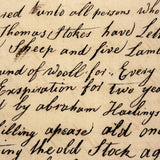 sed unto all persons who
Thomas Stokes have Lett
Sheep and five Lamb
und of Wooll for Every
Expiration for two year
d by abraham Hastings
hilling apease old one
ing the old Stock as